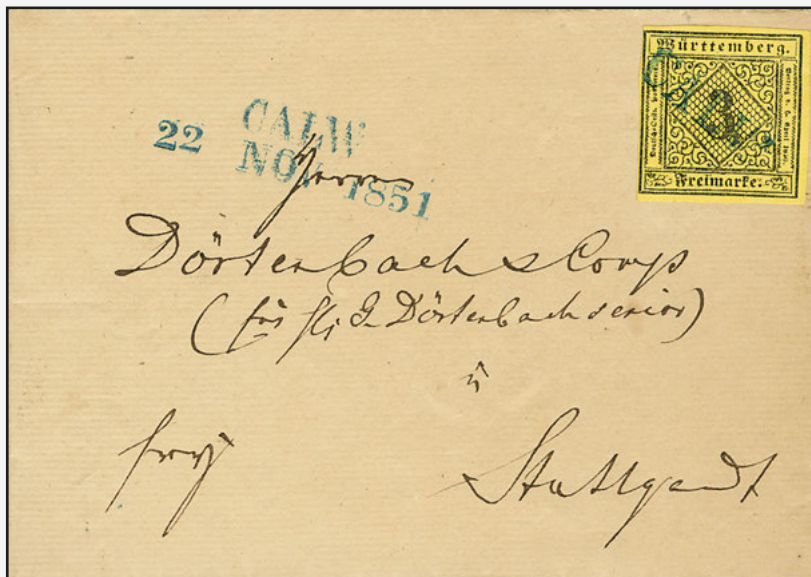 Württemberg.
3
Freimarke.
CALW
22 CALW
NOV. 1851
Herrn
Dörtenbach & Comp
(für G. Dörtenbach senior)
Stuttgardt